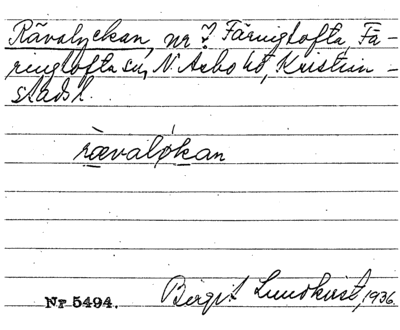 Rävalyckan, nr ? Färingtofta, Fä-
ringtofta sn, N. Åsbo hd, Kristian-
stads l.
rævaløkan
Nr 5494. Birgit Lundkvist, 1936.